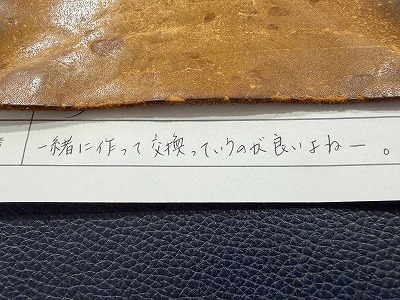 一緒に作って交換っていうのが良いよねー。